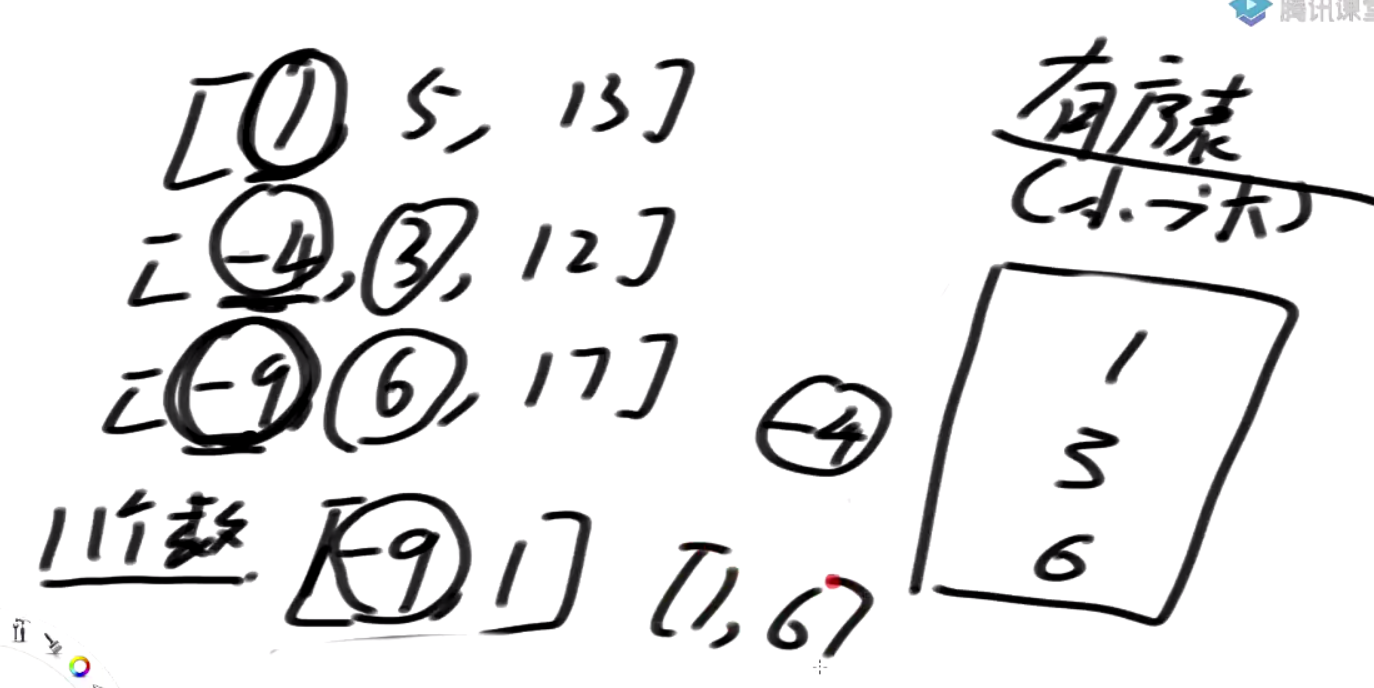 腾讯课堂
[1 5, 13]
[-4, 3, 12]
[-9 6, 17]
11个数 [-9 1]
[1, 6]
-4
有序表
(小→大)
1
3
6